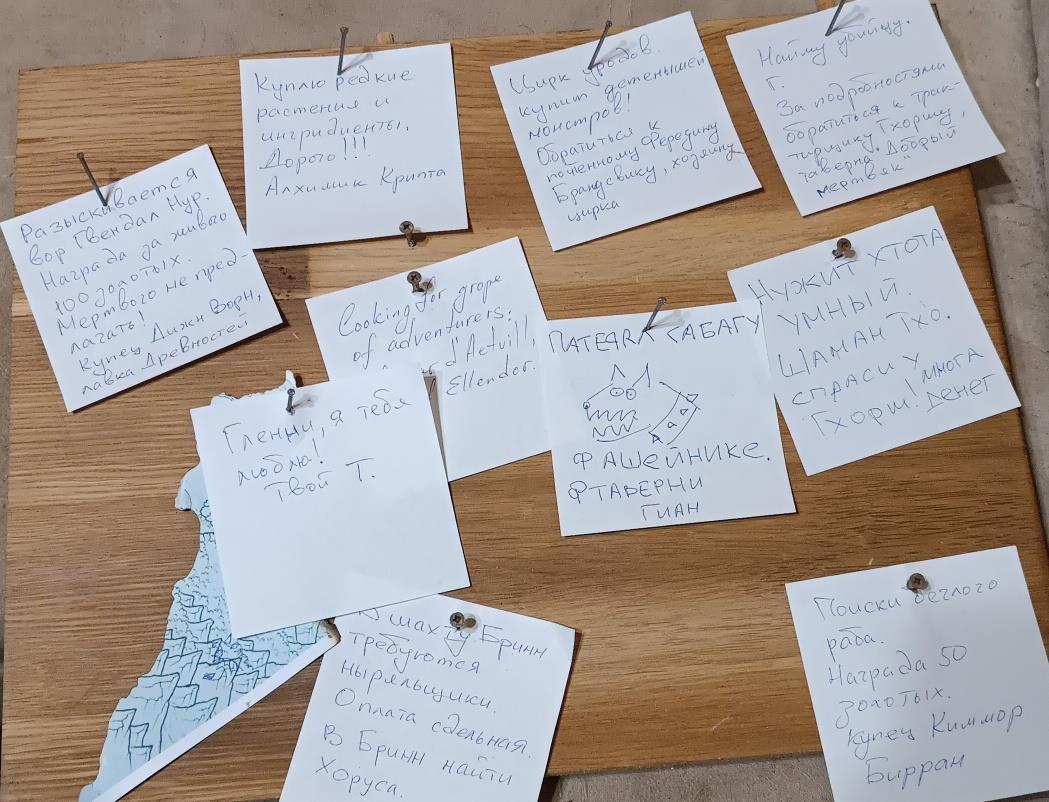 Куплю редкие
растения и
ингридиенты.
Дорого!!!
Алхимик Крипта
Цирк уродов
купит детенышей
монстров!
Обратиться к
почтенному Фередину
Брандсвику, хозяину
цирка
Найму убийцу.
Г.
За подробностями
обратиться к трак-
тирщику Гхоршу,
таверна „Добрый
мертвяк"
Разыскивается
вор Гвендал Нур.
Награда за живого
100 золотых.
Мертвого не пред-
лагать!
Купец Дижн Ворн,
лавка Древностей
Looking for grope
of adventurers.
d'Aetuill,
Ellendor.
ПАТЕРЯЛ САБАГУ
ФАШЕЙНИКЕ.
ФТАВЕРНИ
ГИАН
НУЖИТ ХТОТА
УМНЫЙ.
ШАМАН ТХО.
СПРАСИ У
ГХОРШ! МНОГА
ДЕНЕГ
Гленни, я тебя
люблю!
Твой Т.
В шахту Бринн
требуются
ныряльщики.
Оплата сдельная.
В Бринн найти
Хоруса.
Поиски беглого
раба.
Награда 50
зохотых.
Купец Киммор
Бирран